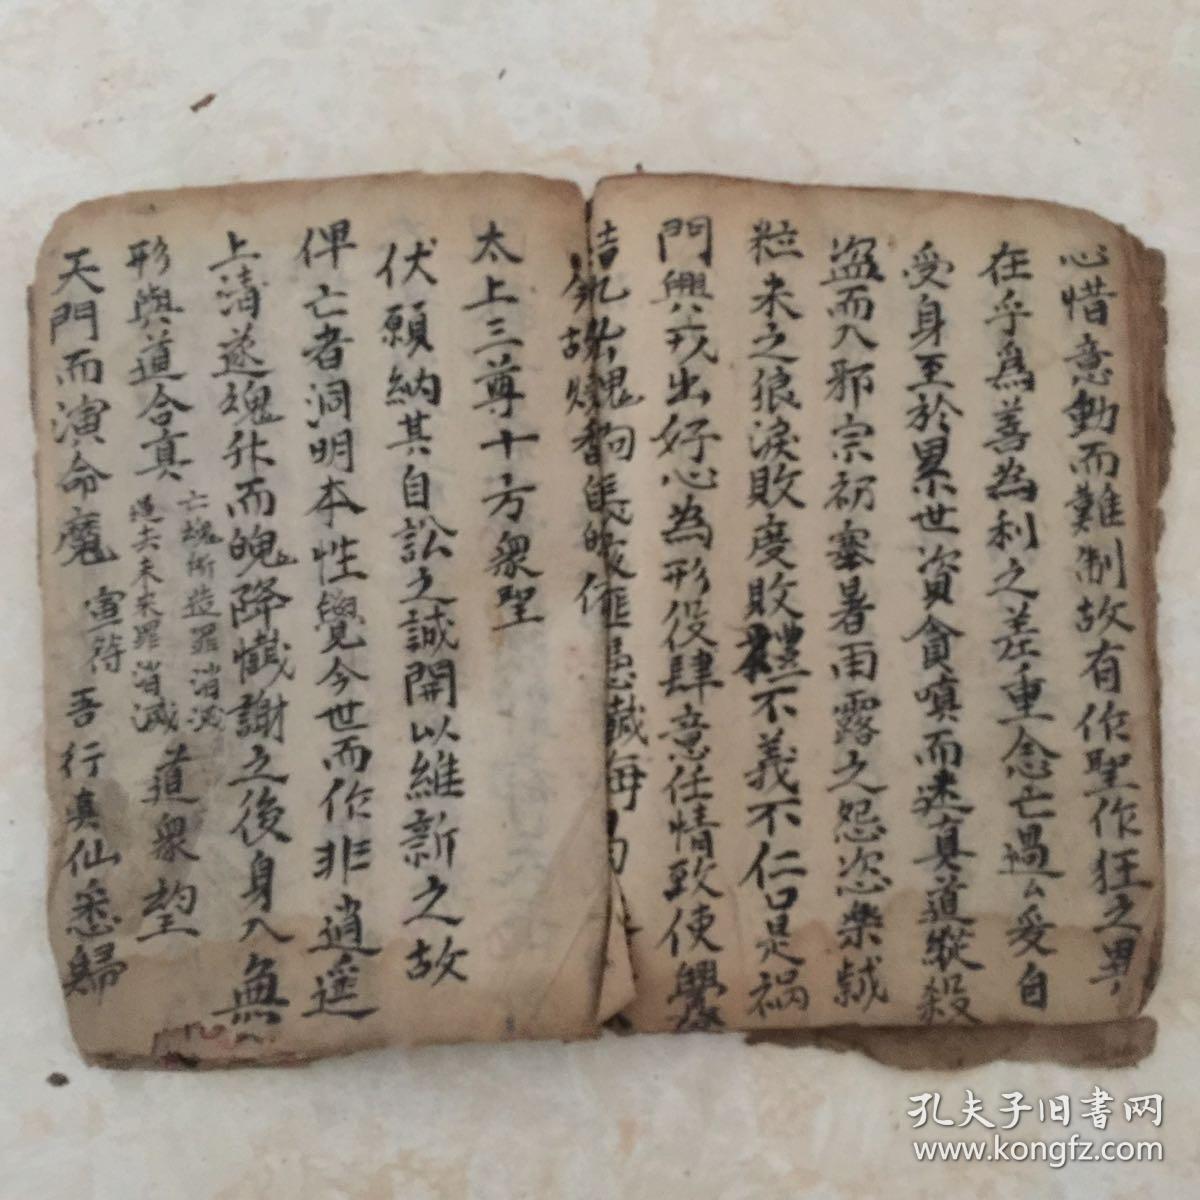 心惜意動而難制故有作聖作狂之異
在乎為善為利之差重念亡過厶爰自
受身至於累世資貪嗔而迷真道縱殺
盗而入邪宗初寒暑雨露之怨恣樂
粒米之狼淚敗度敗禮不義不仁口是禍
門興戎出好心為形役肆意任情致使
故
太上三尊十方衆聖
伏願納其自訟之誠開以維新之故
俾亡者洞明本性覺今世而作非逍遥
上清遂魂升而魄降懺謝之後身入無
形與道合真
亡魂所造罪消滅
過去未来罪消滅
道衆
天門而演命魔 宣符 吾行真仙悉歸
孔夫子旧书网
www.kongfz.com